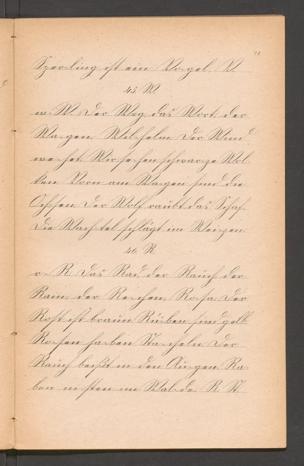 Sper-ling ist ein Vo-gel. V.
45. W.
w. W. Der Weg das Wort der
Wa-gen Wil-helm Der Wind
we-het Wir se-hen schwar-ze Wol-
ken Vorn am Wagen sind die
Ochsen Der Wolf raubt das Schaf
Die Wach-tel schlägt im Wei-zen
46. R.
r. R. Das Rad der Rauch der
Raum der Re-chen Ro-sa Der
Rost ist braun Rü-ben sind gelb
Ro-sen ha-ben Sta-cheln Der
Rauch beißt in den Au-gen Ra-
ben ni-sten im Wal-de R. St.